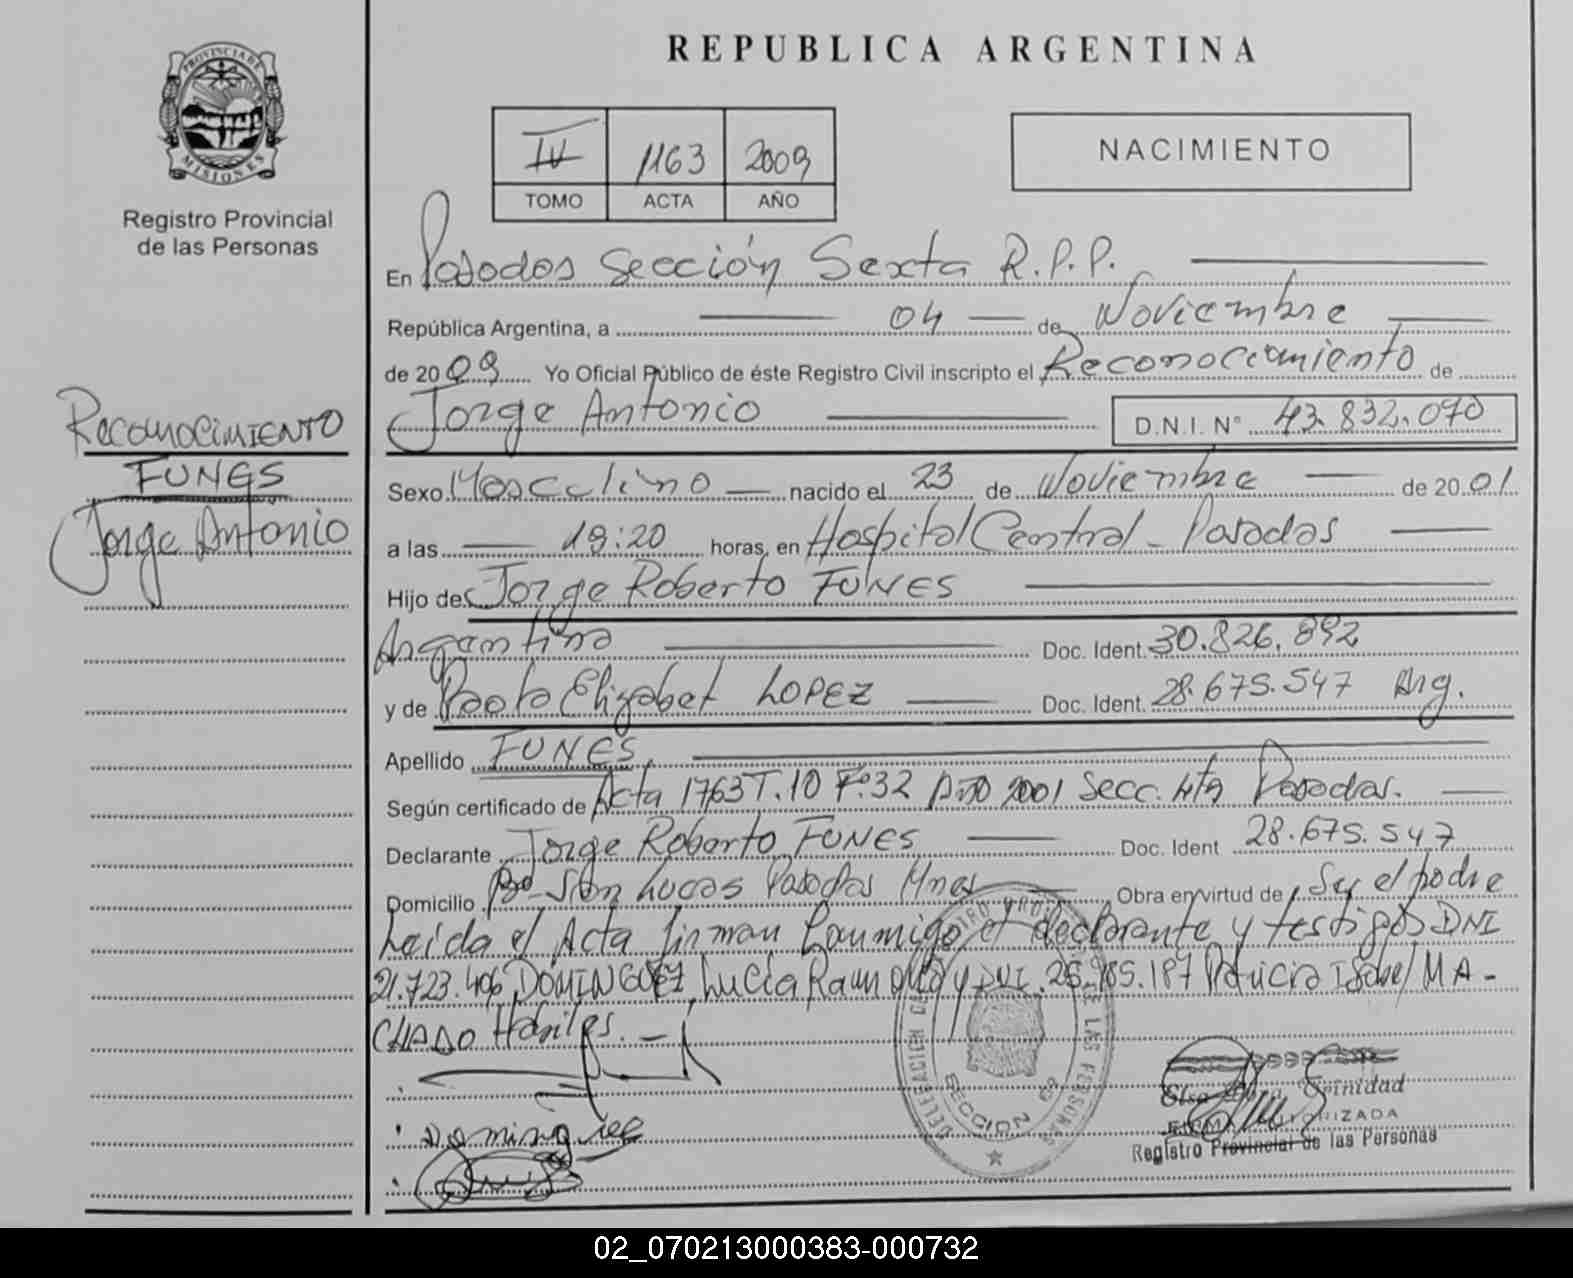 REPUBLICA ARGENTINA
PROVINCIA DE
MISIONES
Registro Provincial
de las Personas
IV 1163 2009
TOMO ACTA AÑO
NACIMIENTO
En Posadas Sección Sexta R.P.P.
República Argentina, a 04 de Noviembre
de 2009 Yo Oficial Público de éste Registro Civil inscripto el Reconocimiento de
Jorge Antonio D.N.I. N° 43.832.070
Reconocimiento
FUNES
Jorge Antonio
Sexo Masculino nacido el 23 de Noviembre de 2001
a las 19:20 horas, en Hospital Central - Posadas
Hijo de Jorge Roberto FUNES
Argentino Doc. Ident. 30.826.892
y de Paola Elizabet LOPEZ Doc. Ident. 28.675.547 Arg.
Apellido FUNES
Según certificado de Acta 1763 T.10 F°32 Año 2001 Secc. 4ta Posadas.
Declarante Jorge Roberto FUNES Doc. Ident 28.675.547
Domicilio B° San Lucas Posadas Mnes Obra en virtud de Ser el padre
Leída el Acta firman Conmigo el declarante y testigos DNI
21.723.406 DOMINGUEZ Lucía Ramona y DNI. 25.985.187 Patricia Isabel MA-
CHADO Hábiles. -
Dominguez
DELEGACION
LAS PERSONAS
SECCION 6ª
Elsa Trinidad
AUTORIZADA
Registro Provincial de las Personas
02_070213000383-000732